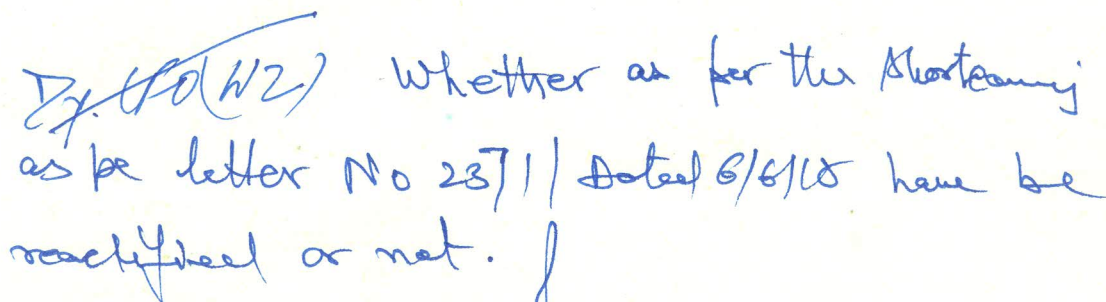 Dy. CFO (WZ) Whether as per the shortcoming
as pe letter No 2371/ Dated 6/6/18 have be
reactified or not.